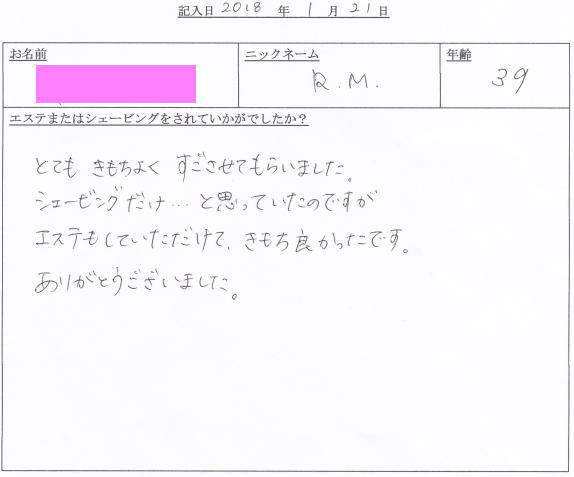 記入日 2018 年 1 月 21 日
お名前 ニックネーム 年齢
R.M. 39
エステまたはシェービングをされていかがでしたか?
とても きもちよく すごさせてもらいました。
シェービングだけ…と思っていたのですが
エステもしていただけて、きもち良かったです。
ありがとうございました。